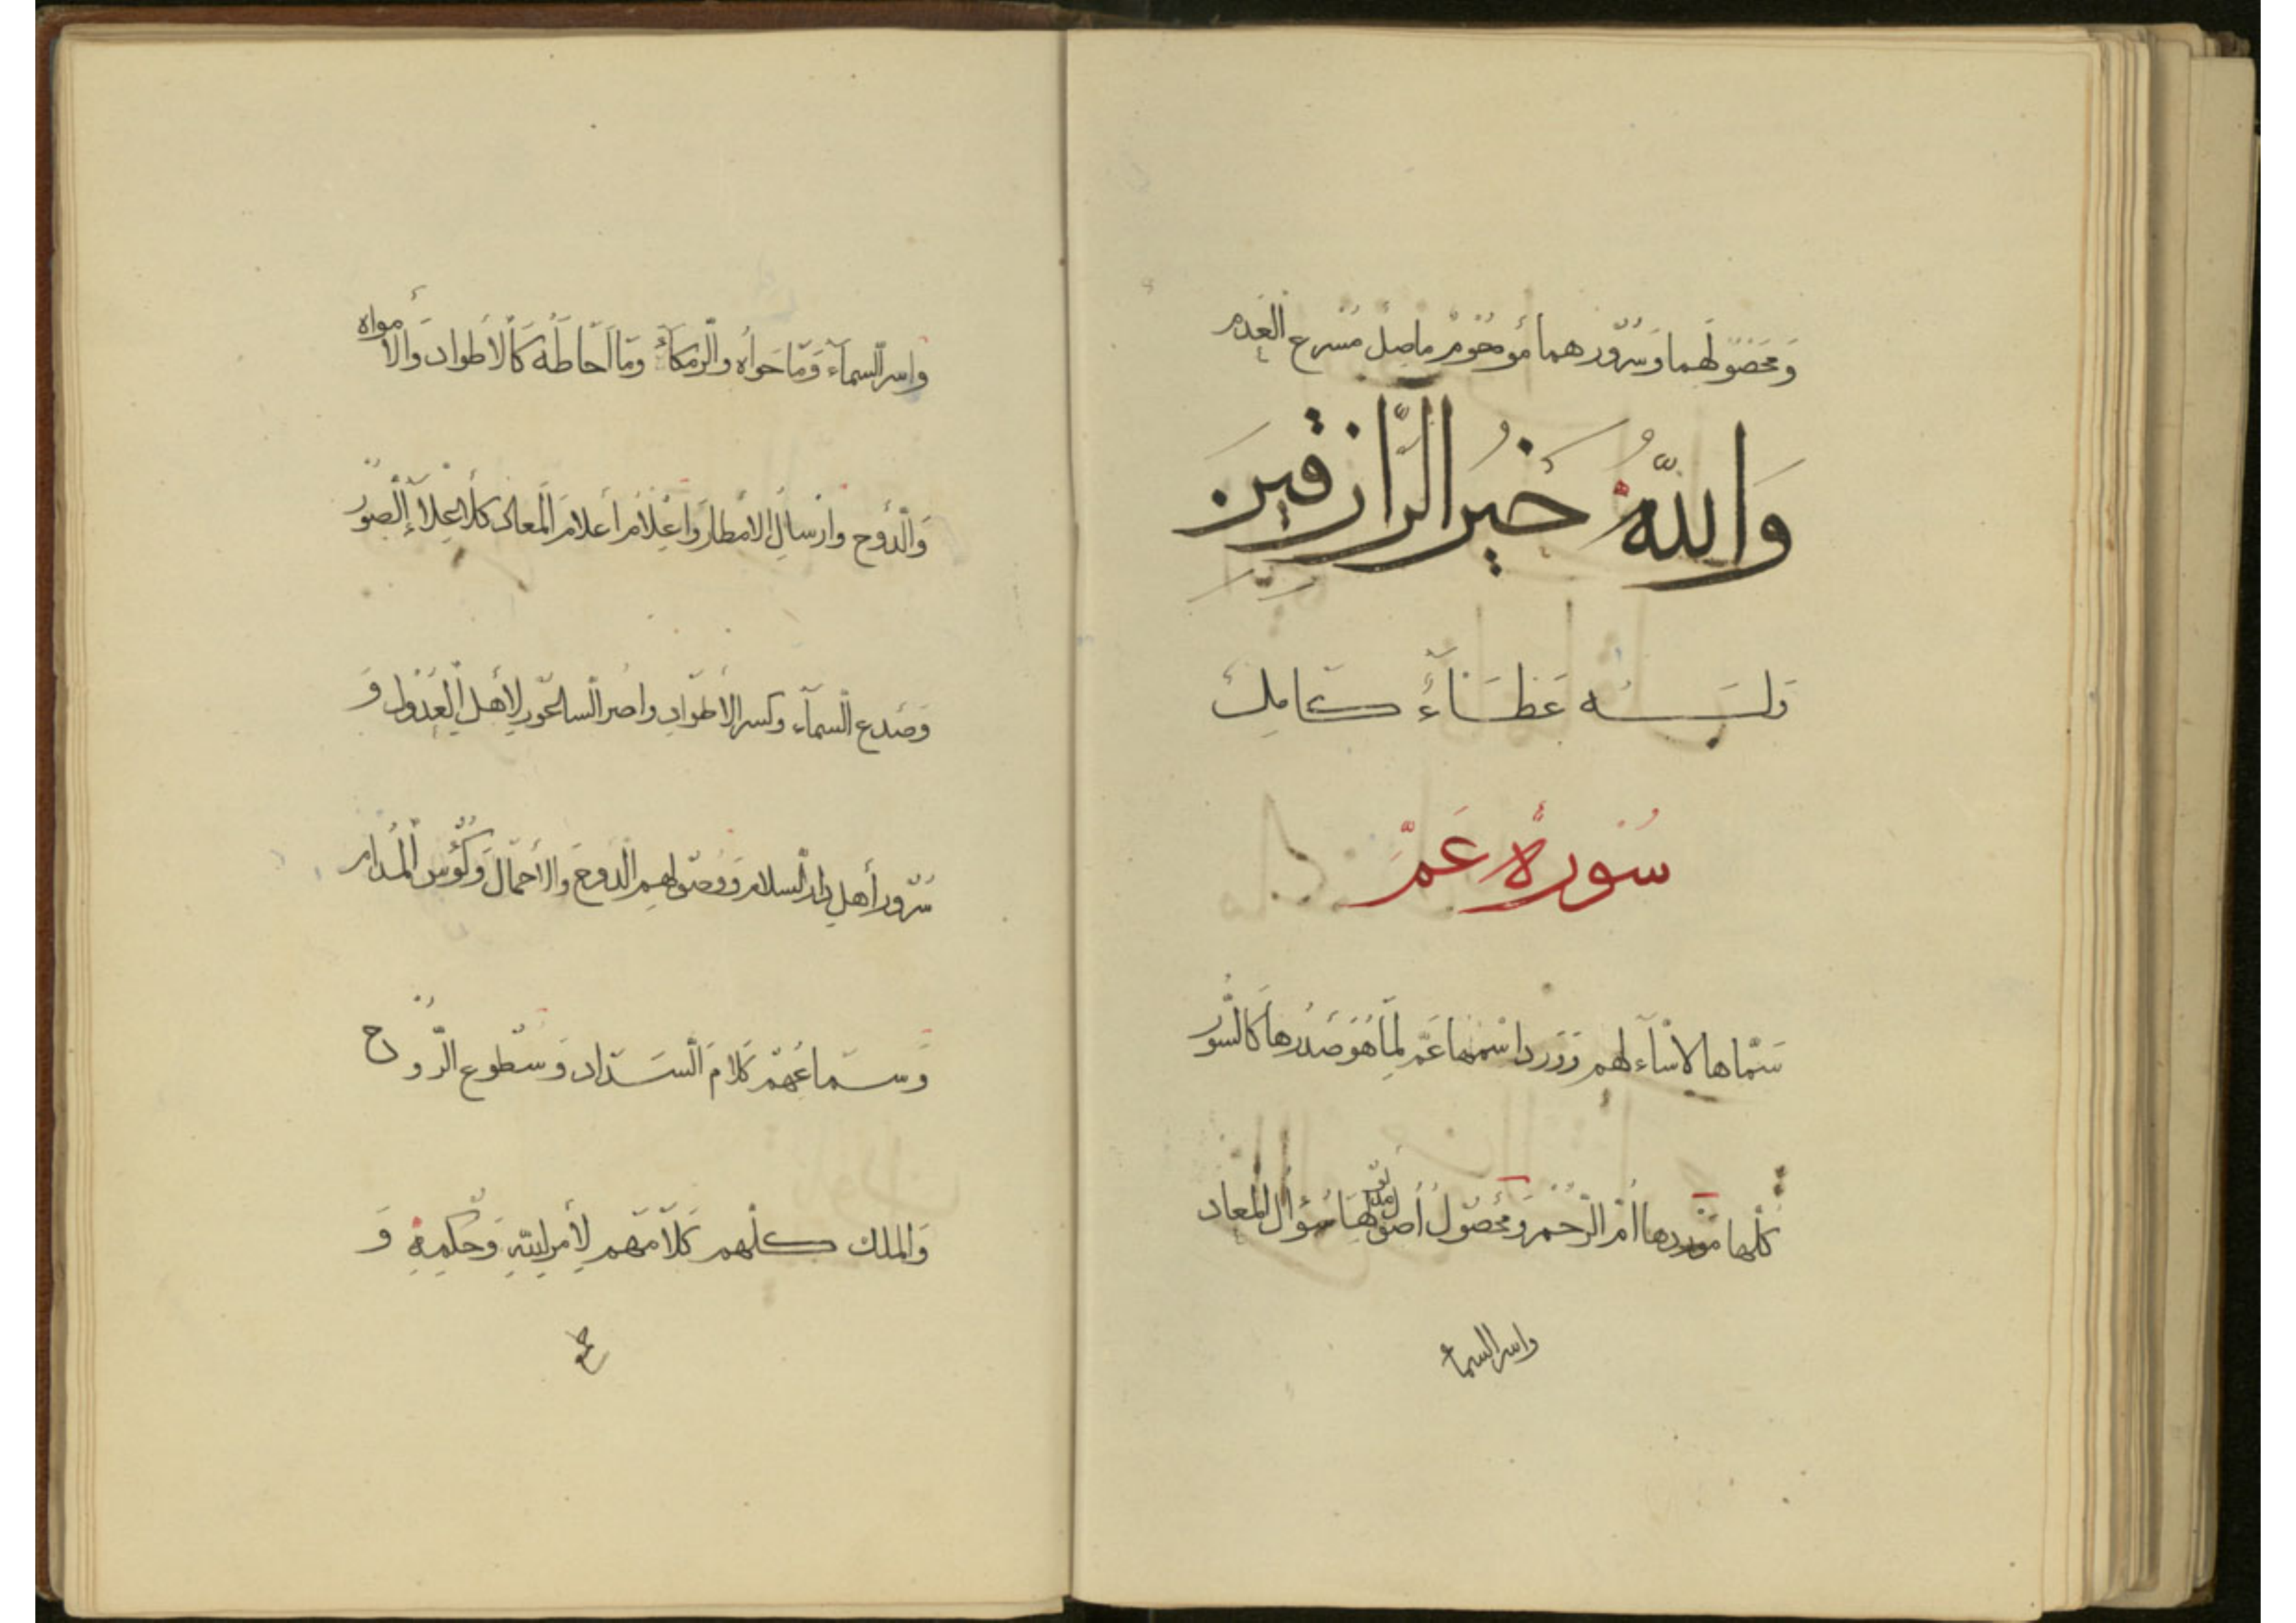 ومحصولهما وسرورهما مو محوم ماصل مسرع العدم
وَاللَّهُ خَيْرُ الرَّازِقِينَ
وله عطاء كامل
سُورَة عَمَّ
سماها لاساء لهم وورد اسمها عم لما هو صدرها كالسور
كلها موردها أم الرحم ومحصول أصول مدلولها سؤال المعاد
واسر السماء
واسر السماء وما حواه والرمكاء وما أحاطه كالأطواد والأمواه
والدوح وإرسال الأمطار وإعلام أعلام المعاد كلها علاء الصور
وصدع السماء وكسر الأطواد واصر الساعور لأهل العدول و
سرور أهل دار السلام ووصولهم الدوح والأحمال وكؤس المدام
وسماعهم كلام السداد وسطوع الروح
والملك كلهم كلامهم لأمر الله وحكمه و